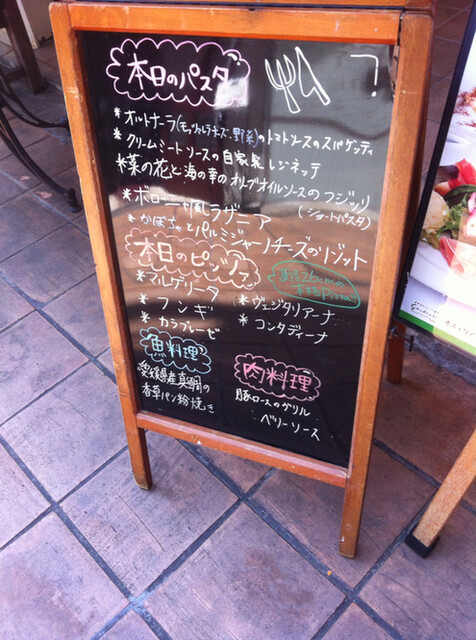 本日のパスタ
*オルトナーラ(モッツァレラチーズ、野菜)のトマトソースのスパゲッティ
*クリームミートソースの自家製レジネッテ
*菜の花と海の幸のオリーブオイルソースのフジッリ
(ショートパスタ)
*ボローニャ風ラザニア
*かぼちゃとパルミジャーノチーズのリゾット
本日のピッツァ
直径26cmの
*マルゲリータ
*フンギ
*カラブレーゼ
*ヴェジタリアーナ
*コンタディーナ
魚料理
愛媛県産真鯛の
香草パン粉焼き
肉料理
豚ロースのグリル
ベリーソース